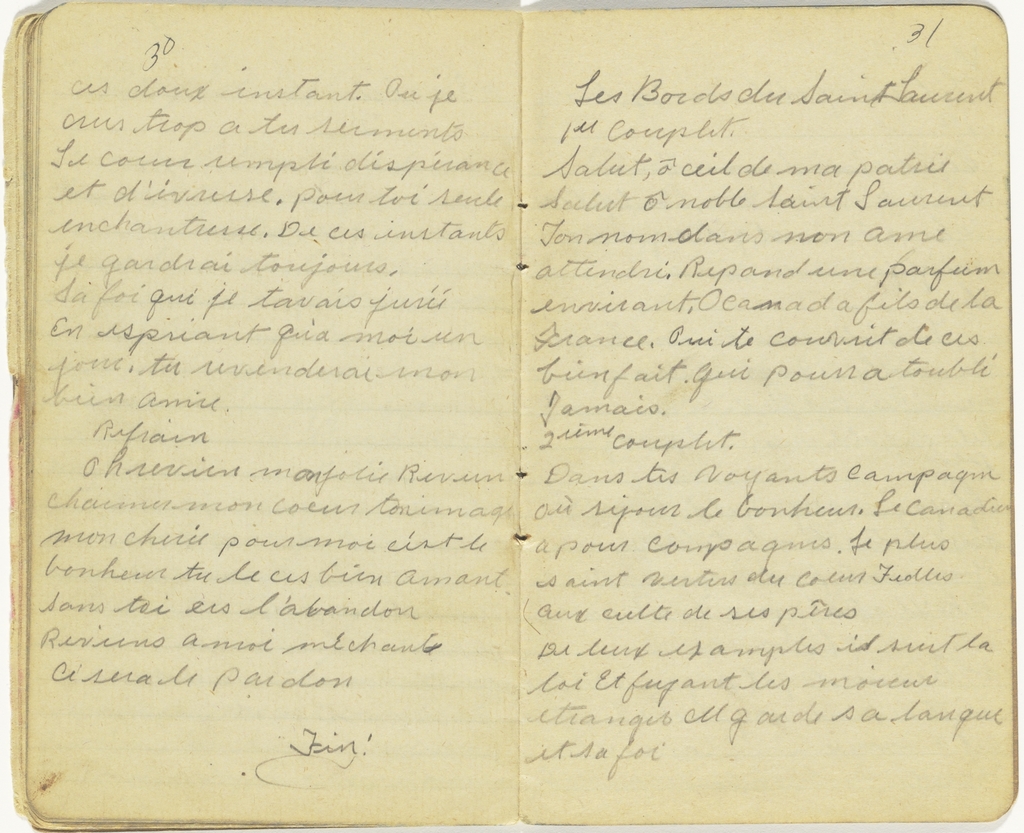 30
ces doux instant. Ou je
crus trop a tes serments
Le coeur rempli déspérance
et d'évresse. pour toi seule
enchantresse. De ces instants
je gardrai toujours.
La foi qui je tavais jurée
En espriant qu'a moi un
jour. tu revenderai mon
bien amie.
Refrain
Oh revien ma jolie Revien
charmer mon coeur ton image
mon cherie pour moi c'est le
bonheur tu le ces bien amant
sans toi ces l'abandon
Reviens a moi méchante
Ci sera le pardon
Fin!
31
Les Bords du Saint Laurent
1er Couplet.
Salut, ô ceil de ma patrie
Salut ô noble Saint Laurent
Ton nom dans mon ame
attendri. Repand une parfum
envirant. O canada fils de la
France. Qui te couvrit de ces
bienfait. qui pourra toublié
Jamais.
2ième Couplet.
Dans tes voyants campagne
où sejour le bonheur. Le canadien
a pour compagnes. Le plus
saint vertus du coeur Fedles
aux culte de ses pères
De leur examples il suit la
loi Et fuyant les moieur
etranger Il garde sa langue
et sa foi